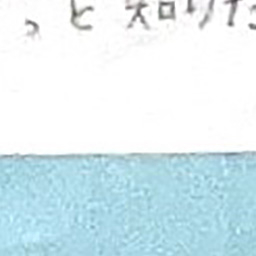 っと知りた